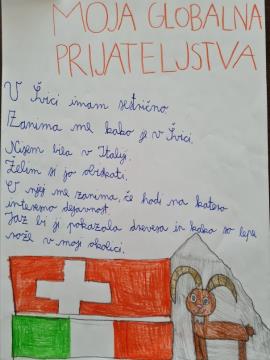 MOJA GLOBALNA
PRIJATELJSTVA
V Švici imam sestrično.
Zanima me kako je v Švici.
Nisem bila v Italiji.
Želim si jo obiskati.
O njej me zanima, če hodi na katero
interesno dejavnost.
Jaz bi ji pokazala drevesa in kako so lepe
rože v moji okolici.